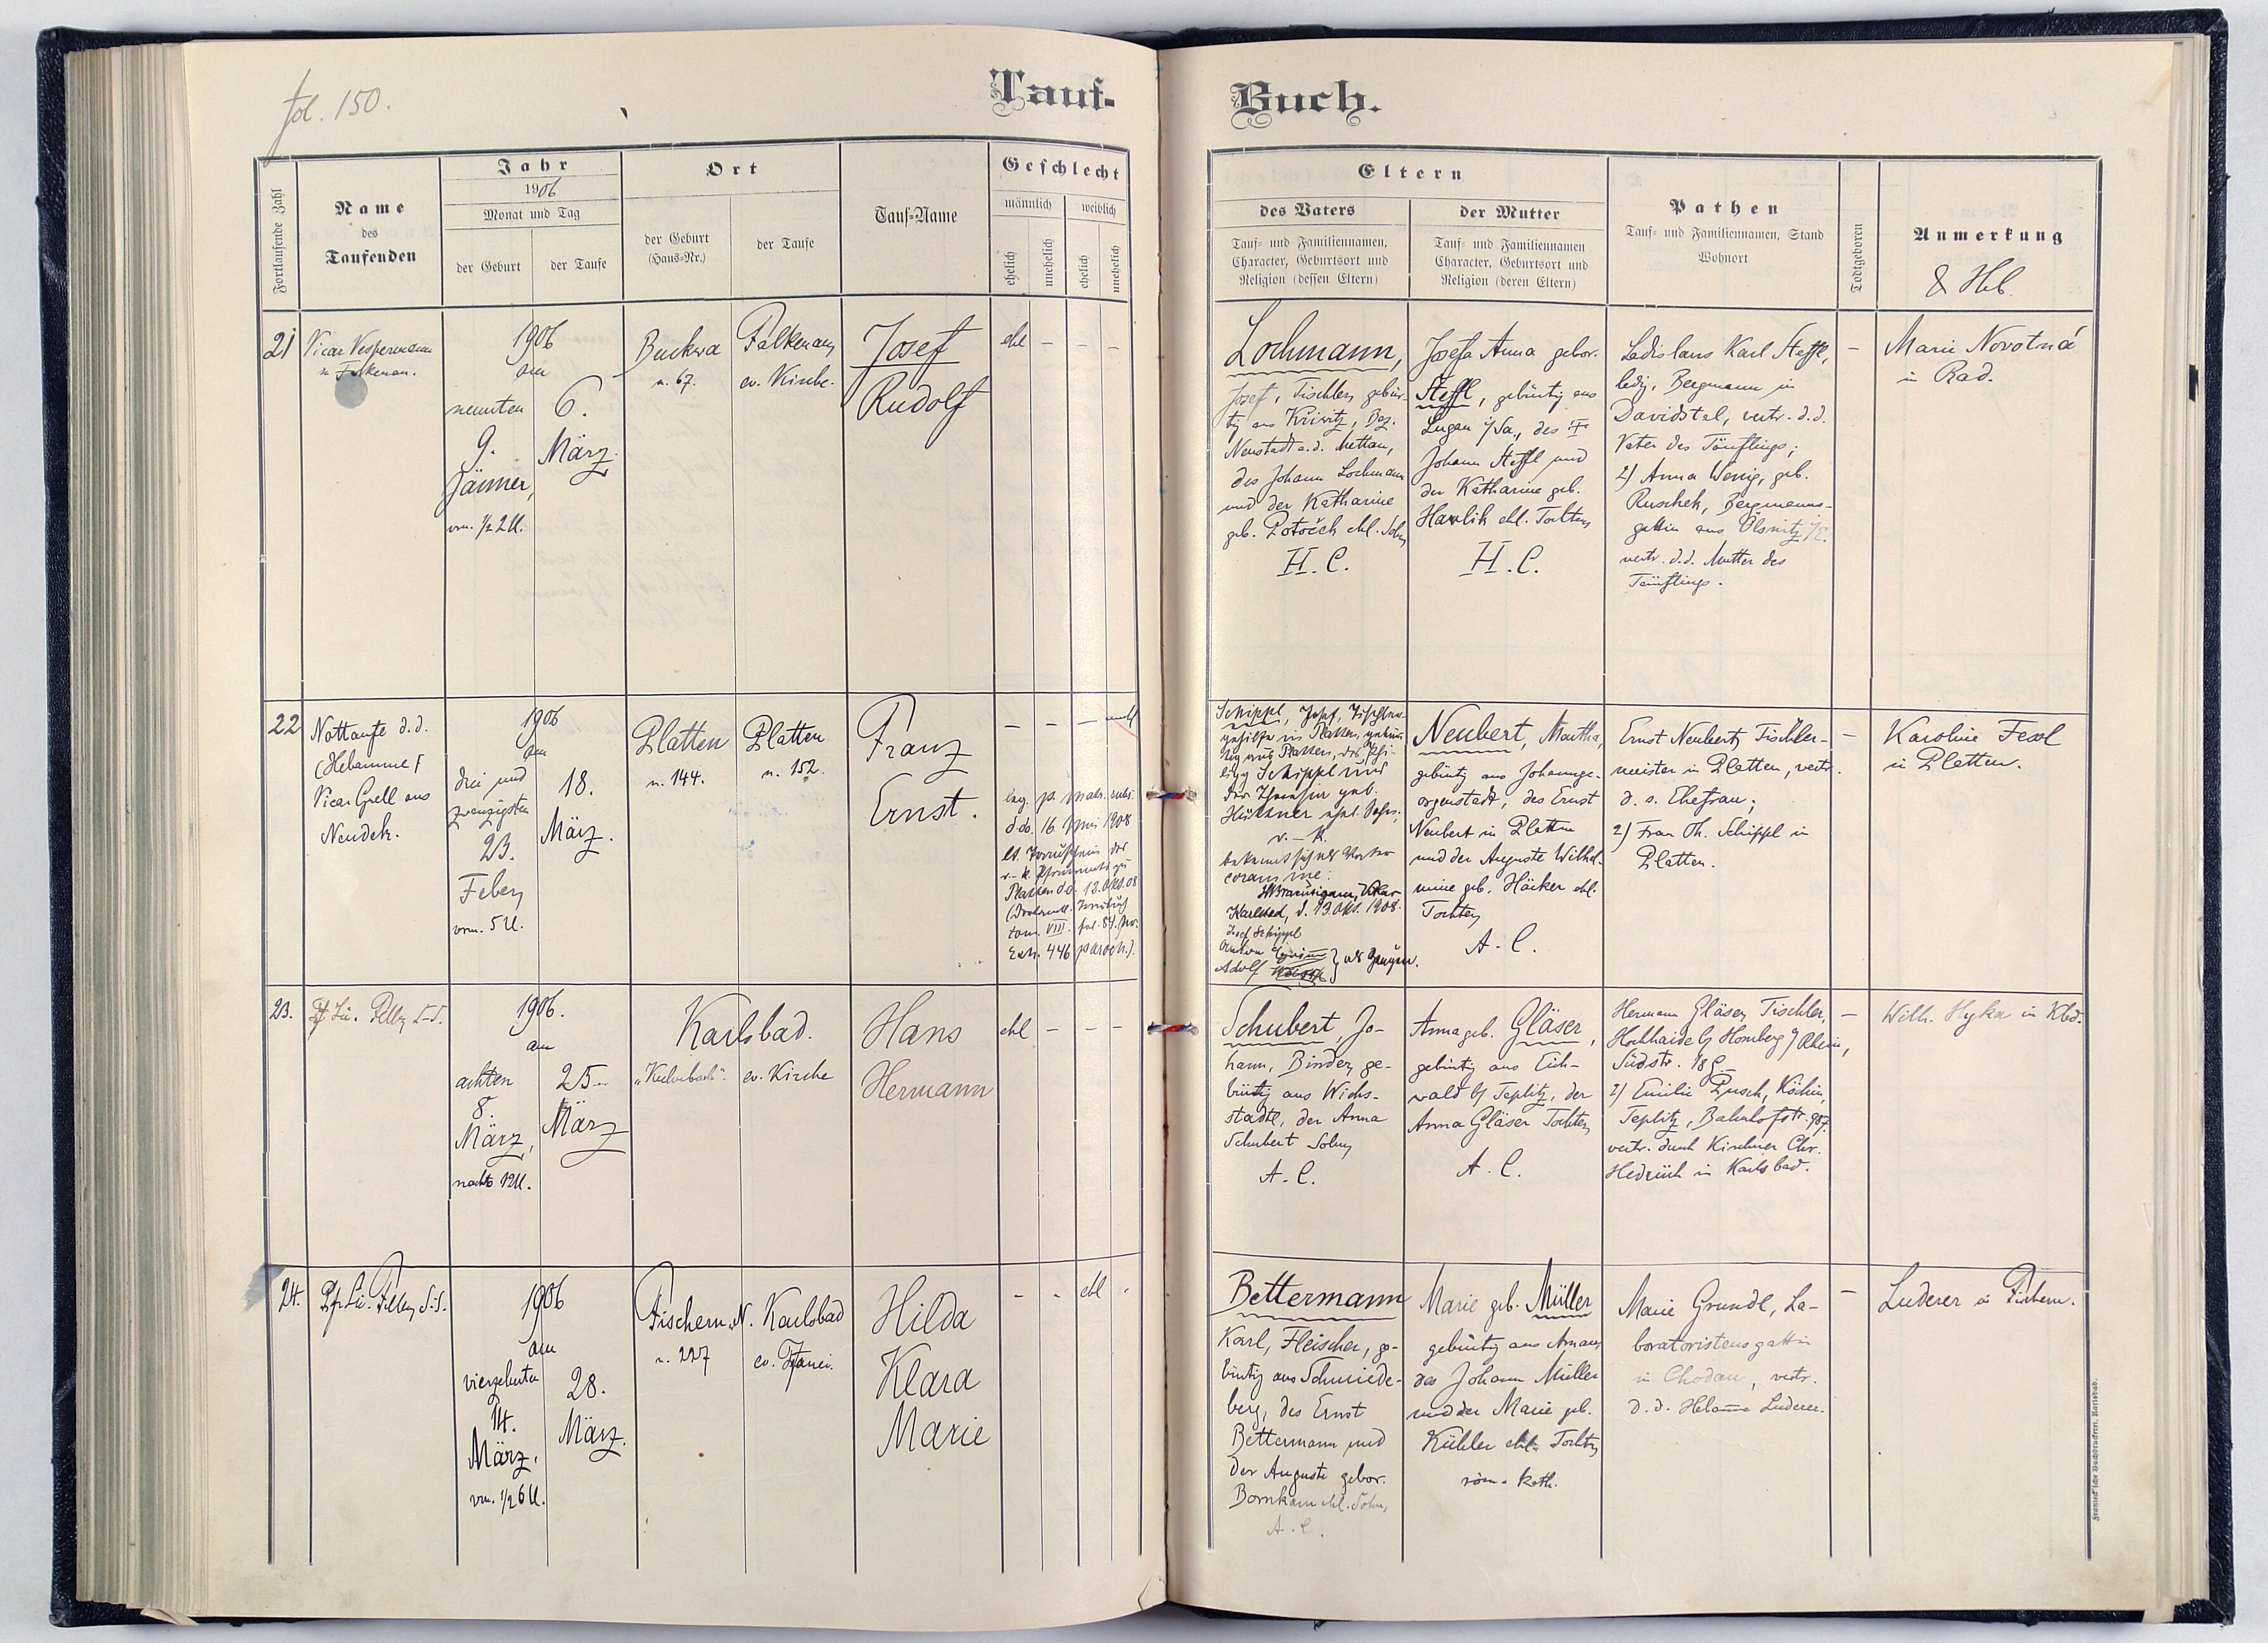 fol. 150.
Tauf-
Buch.
Fortlaufende Zahl
Name
des
Taufenden
Jahr
1906
Monat und Tag
der Geburt
der Taufe
Ort
der Geburt
(Haus-Nr.)
der Taufe
Tauf-Name
Geschlecht
männlich
weiblich
ehelich
unehelich
ehelich
unehelich
Eltern
des Vaters
Tauf- und Familiennamen,
Character, Geburtsort und
Religion (dessen Eltern)
der Mutter
Tauf- und Familiennamen
Character, Geburtsort und
Religion (deren Eltern)
Pathen
Tauf- und Familiennamen, Stand
Wohnort
Todtgeboren
Anmerkung
& Heb.
21
Vicar Vespermann
in Falkenau.
1906
am
neunten
9.
Jänner,
vm. 1/2 2 U.
6.
März.
Buckwa
n. 67.
Falkenau
ev. Kirche.
Josef
Rudolf
ehl
–
–
–
Lochmann,
Josef, Tischler, gebür-
tig aus Kriwitz, Bez.
Neustadt a.d. Mettau,
des Johann Lochmann
und der Katharine
geb. Potoček ehl. Sohn
H. C.
Josefa Anna gebor.
Steffl, gebürtig aus
Lugau i/Sa., des †
Johann Steffl und
der Katharine geb.
Hawlik ehl. Tochter,
H. C.
Ladislaus Karl Steffl,
ledig, Bergmann in
Davidstal, vertr. d. d.
Vater des Täuflings;
2) Anna Wenig, geb.
Ruschek, Bergmanns-
gattin aus Ölsnitz i/E.
vertr. d. d. Mutter des
Täuflings.
–
Marie Novotná
in Rad.
22
Nottaufe d. d.
(Hebamme)
Vicar Grell aus
Neudek.
1906
am
drei und
zwanzigsten
23.
Feber,
vorm. 5 U.
18.
März.
Platten
n. 144.
Platten
n. 152.
Franz
Ernst.
–
–
–
unehl
leg. p. matr. subs.
d.do. 16 Mai 1908
lt. Trauschein des
r.-k. Pfarramts zu
Platten dd. 12. Okt. 08
tom. VIII. fol. 84.
Exh. 446 paroch.)
Schippl, Josef, Tischler-
gehilfe in Platten, gebür-
tig aus Platten, des
Schippl und
der Theresia geb.
Hüttner ehel. Sohn,
r. – k.
bekennt sich als Vater
coram me:
Karlsbad, d. 13. Okt. 1908.
Josef Schippl
Anton
Adolf
als Zeugen.
Neubert, Martha,
gebürtig aus Johannge-
orgenstadt, des Ernst
Neubert in Platten
und der Auguste Wilhel-
mine geb. Häcker ehl.
Tochter,
A. C.
Ernst Neubert, Tischler-
meister in Platten, vertr.
d. s. Ehefrau;
2) Frau Th. Schippl in
Platten.
–
Karoline Fessl
in Platten.
23.
1906.
am
achten
8.
März,
nachts 12 U.
25.
März
Karlsbad.
ev. Kirche
Hans
Hermann
ehl
–
–
–
Schubert, Jo-
hann, Binder, ge-
bürtig aus Wichs-
stadtl, der Anna
Schubert Sohn,
A. C.
Anna geb. Gläser,
gebürtig aus Eich-
wald b/ Teplitz, der
Anna Gläser Tochter,
A. C.
Hermann Gläser, Tischler,
Hochhaide b/ Homberg a/ Rhein,
Südstr. 18
2) Emilie Pusch, Köchin,
Teplitz, Bahnhofstr. 987.
vertr. durch Kirchner Chr.
Hedrich in Karlsbad.
–
Wilh. Hyka in Kbd.
24.
Pfr. Lic.
1906
am
vierzehnten
14.
März.
vm. 1/2 6 U.
28.
März.
Fischern
n. 227
N. Karlsbad
ev. Pfarrei.
Hilda
Klara
Marie
–
–
ehl
Bettermann
Karl, Fleischer, ge-
bürtig aus Schmiede-
berg, des Ernst
Bettermann und
der Auguste gebor.
Bornkam ehl. Sohn,
A. C.
Marie geb. Müller
gebürtig aus Arnau,
des Johann Müller
und der Marie geb.
Kühler ehl. Tochter,
röm. kath.
Marie Grundl, La-
boratoristensgattin
in Chodau, vertr.
d. d. Helene Luderer.
–
Luderer in Fischern.
Franieck'sche Buchdruckerei, Karlsbad.